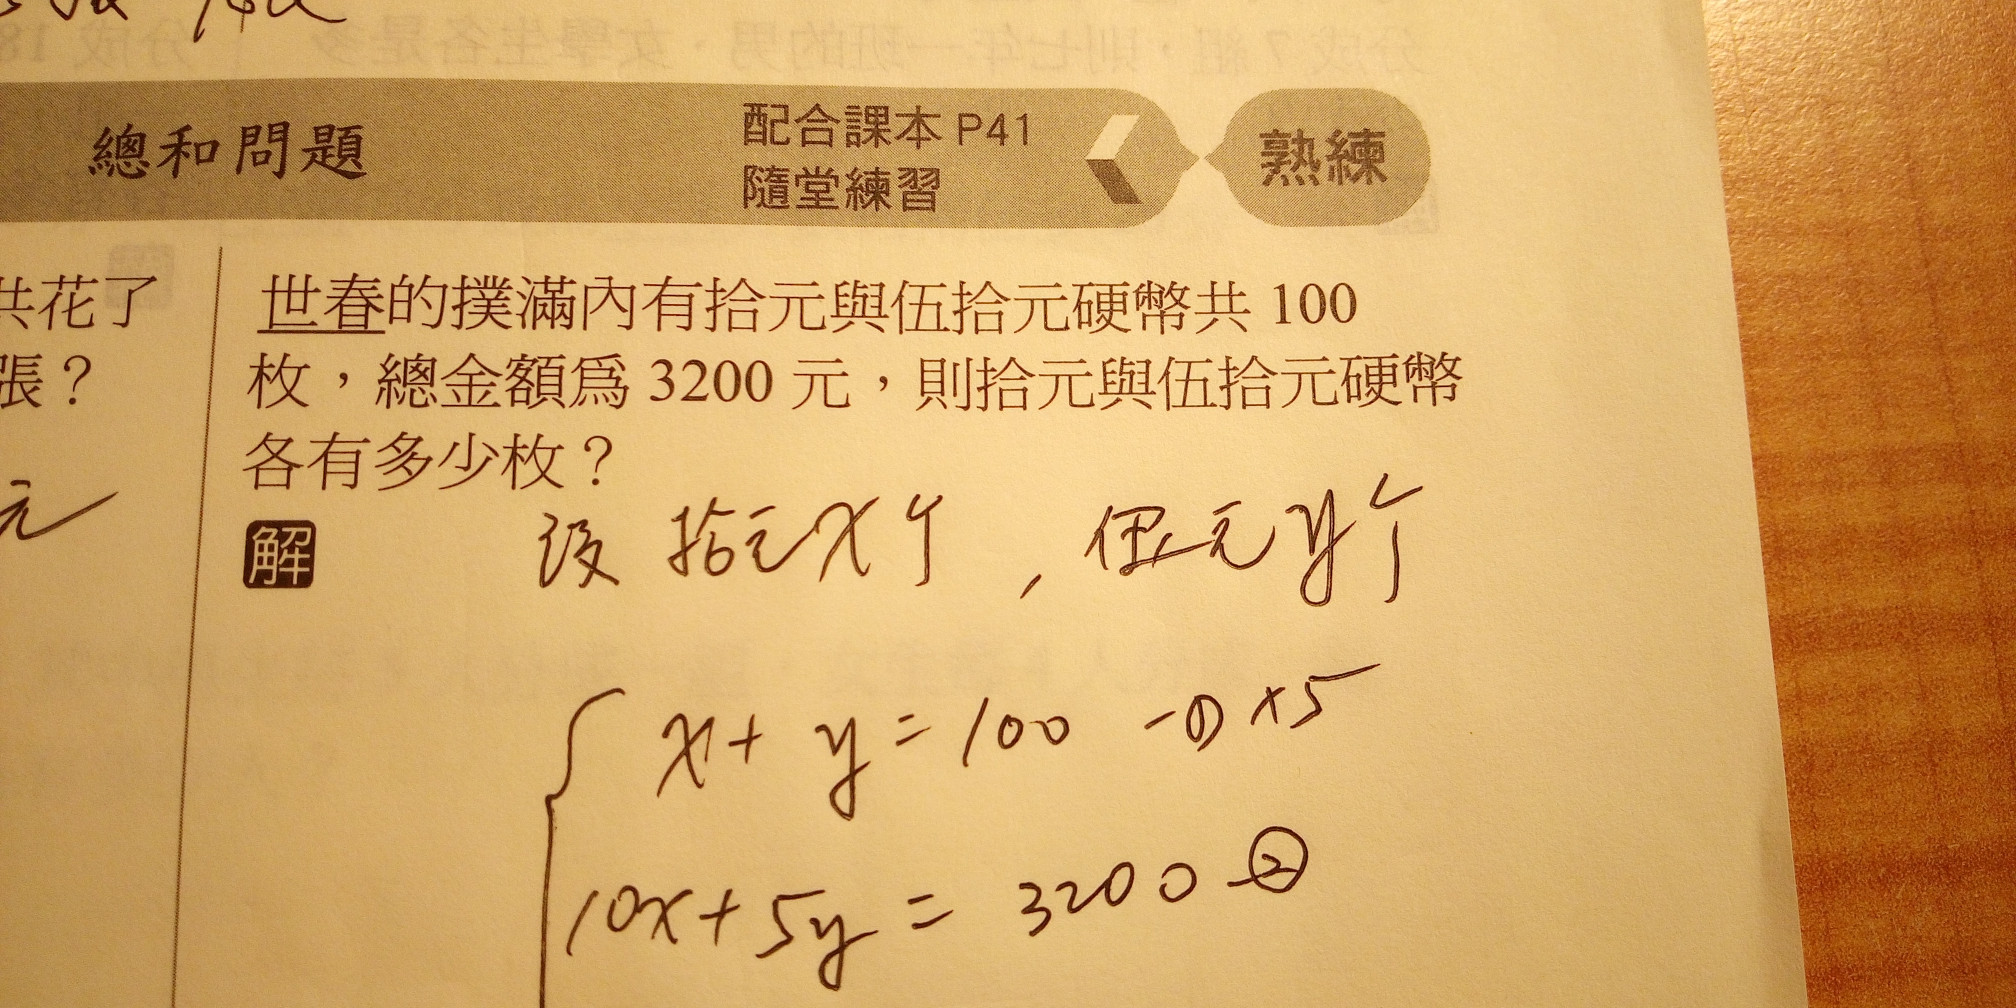 總和問題
配合課本 P41
隨堂練習
熟練
共花了
張？
元
世春的撲滿內有拾元與伍拾元硬幣共 100
枚，總金額為 3200 元，則拾元與伍拾元硬幣
各有多少枚？
解
設 拾元 x 个 , 伍元 y 个
x + y = 100 -① ×5
10x + 5y = 3200 -②